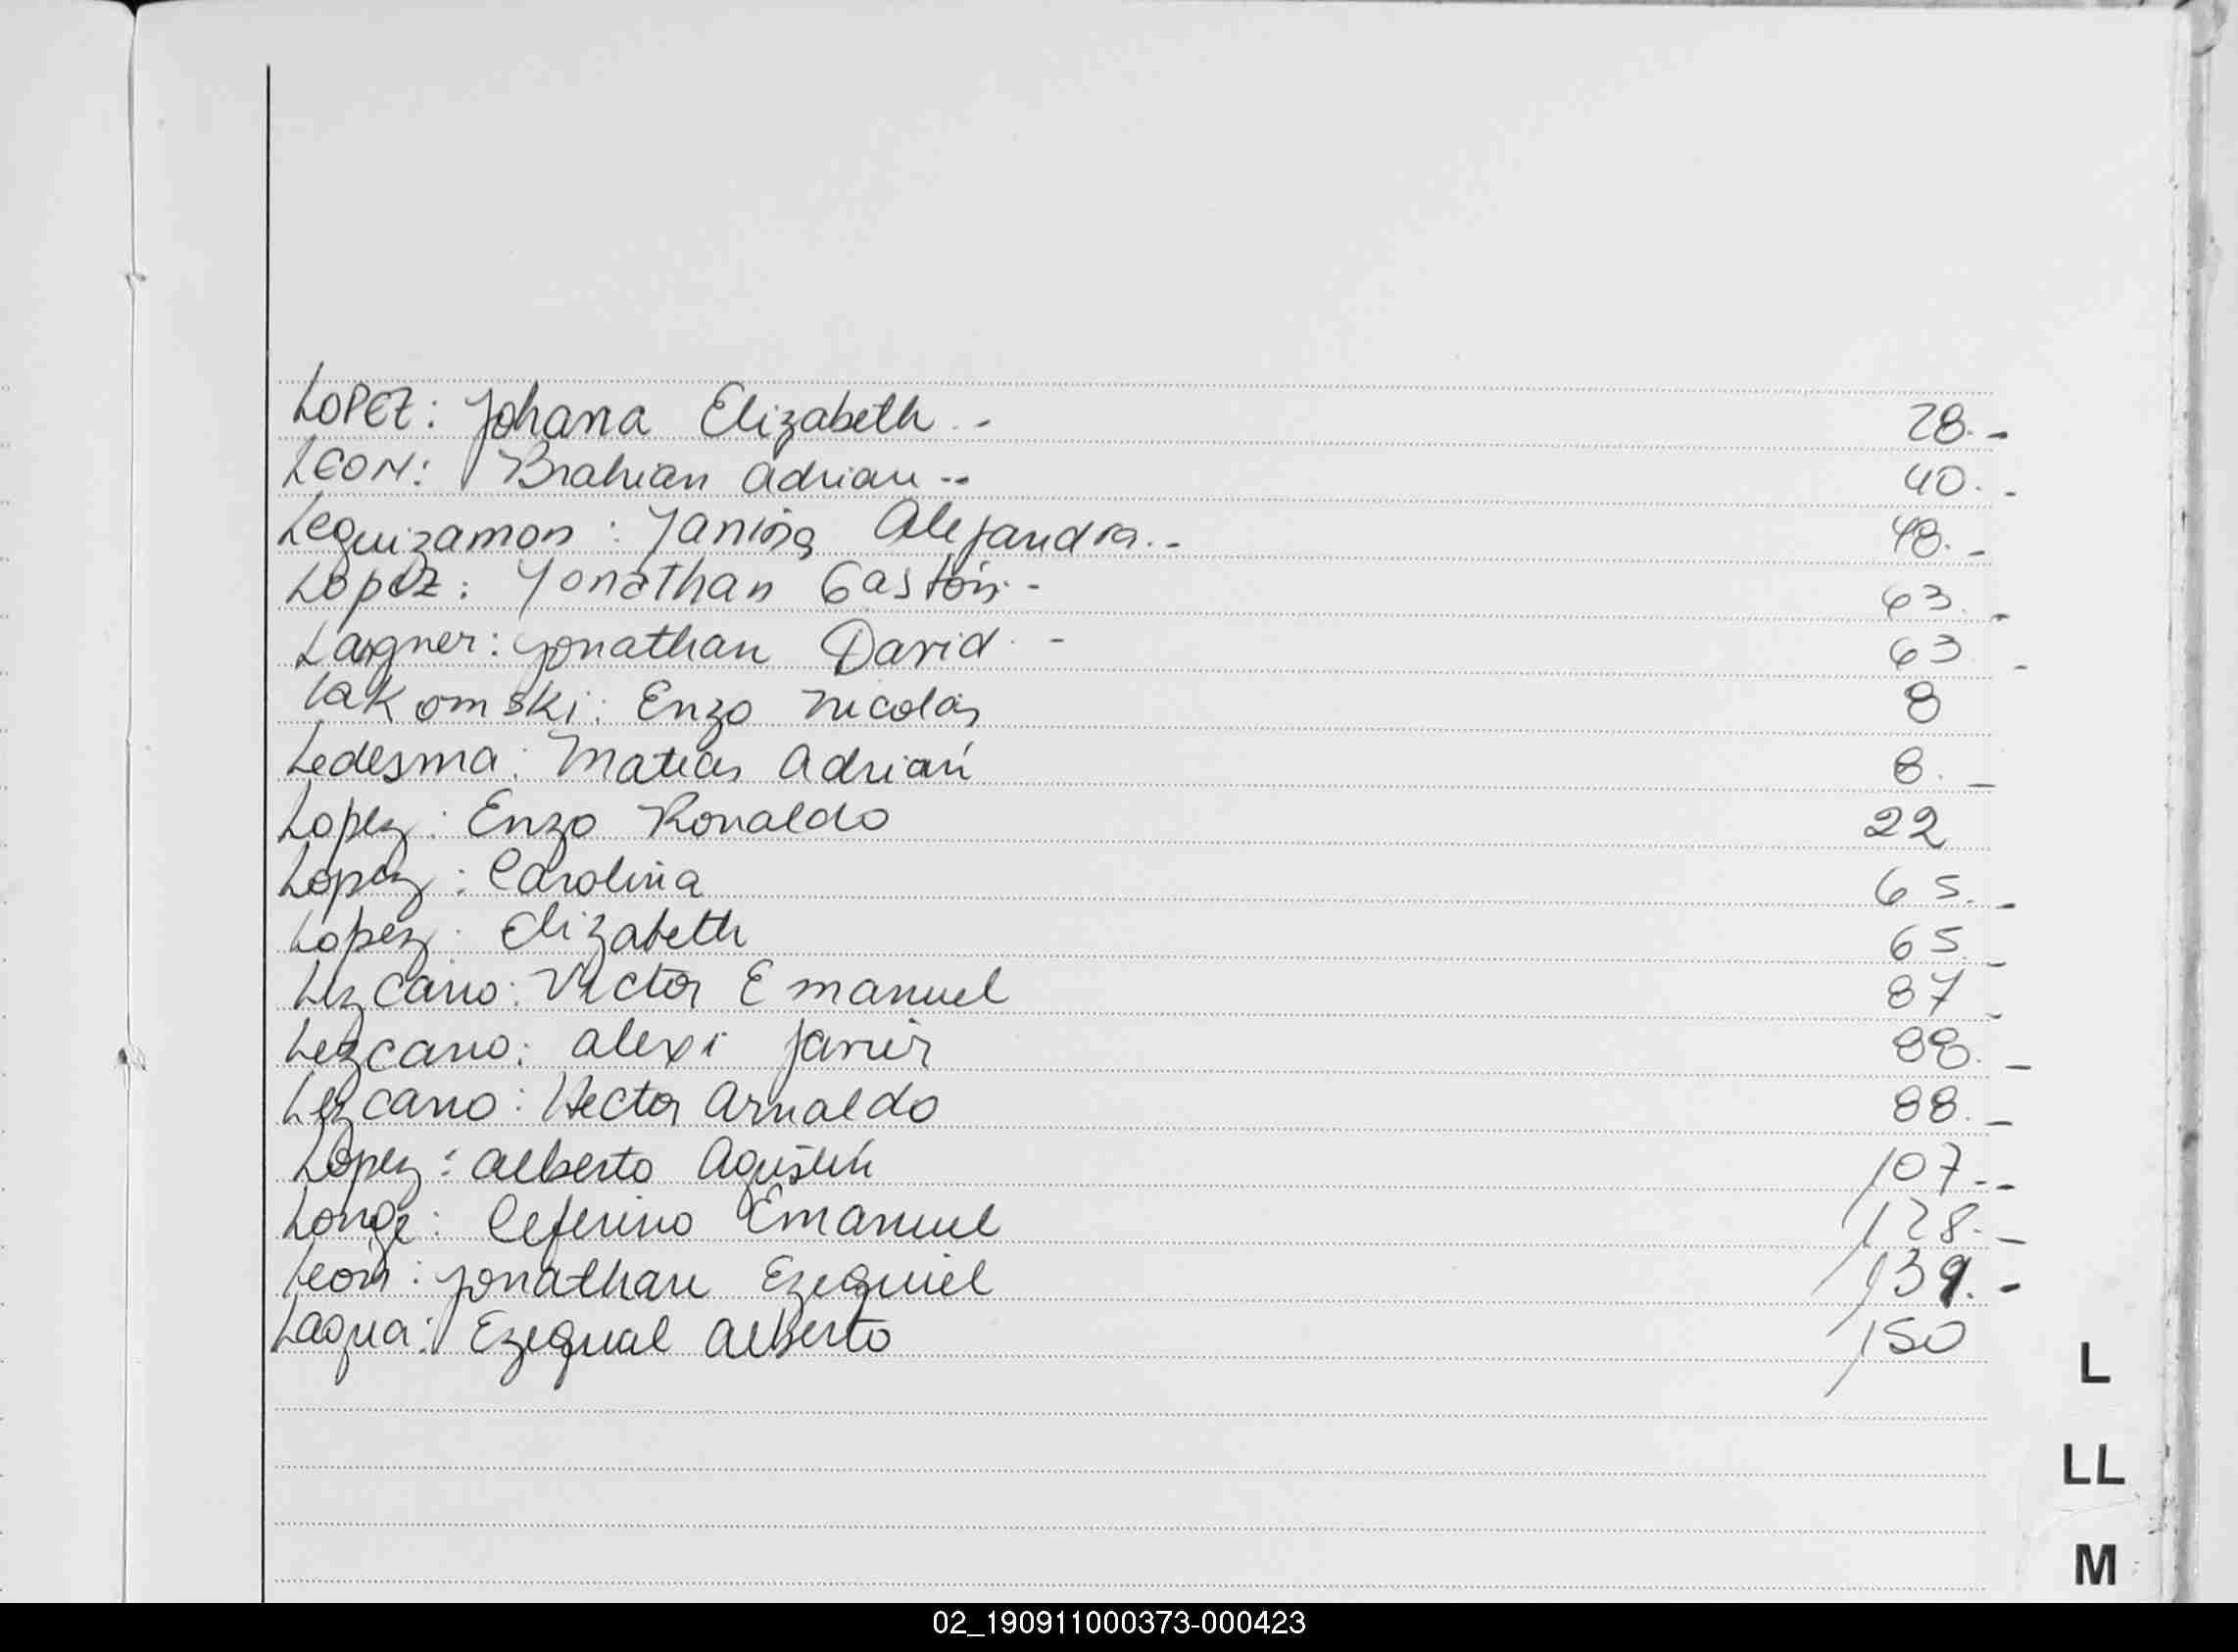 LOPEZ: Johana Elizabeth.- 28.-
LEON: Brahian Adrian.- 40.-
Leguizamon: Yanina Alejandra.- 48.-
Lopez: Yonathan Gastón.- 63.-
Lagner: Jonathan David.- 63.-
Lakomski: Enzo Nicolás 8
Ledesma: Matias Adrián 8.-
Lopez: Enzo Ronaldo 22
Lopez: Carolina 65.-
Lopez: Elizabeth 65.-
Lezcano: Victor Emanuel 87-
Lezcano: Alexi Javier 88.-
Lezcano: Hector Arnaldo 88.-
Lopez: Alberto Agustín 107.-
Longe: Ceferino Emanuel 128.-
Leon: Jonathan Ezequiel 139.-
Laqua: Ezequial Alberto 150
L
LL
M
02_190911000373-000423